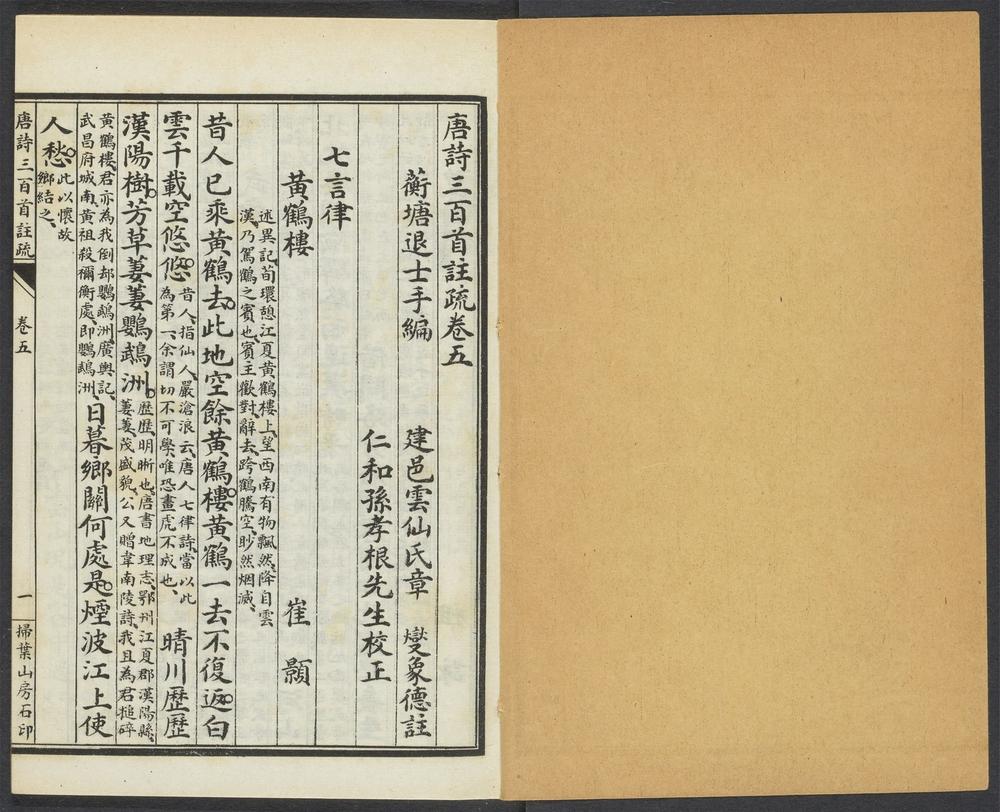 唐詩三百首註疏卷五
蘅塘退士手編　建邑雲仙氏章　燮象德註
仁和孫孝根先生校正
七言律
黃鶴樓　崔　顥
述異記、荀環憩江夏黃鶴樓上、望西南有物飄然、降自雲
漢、乃駕鶴之賓也、賓主歡對、辭去、跨鶴騰空、眇然烟滅、
昔人已乘黃鶴去。此地空餘黃鶴樓。黃鶴一去不復返。白
雲千載空悠悠。
昔人、指仙人、嚴滄浪云、唐人七律詩、當以此
為第一、余謂切不可學、唯恐畫虎不成也、
晴川歷歷
漢陽樹。芳草萋萋鸚鵡洲。
歷歷、明晰也、唐書地理志、鄂州江夏郡漢陽縣、
萋萋、茂盛貌、公又贈韋南陵詩、我且為君槌碎
黃鶴樓、君亦為我倒却鸚鵡洲、廣輿記、
武昌府城南、黃祖殺禰衡處、即鸚鵡洲、
日暮鄉關何處是。煙波江上使
人愁。
此以懷故
鄉結之、
唐詩三百首註疏　卷五　一　掃葉山房石印